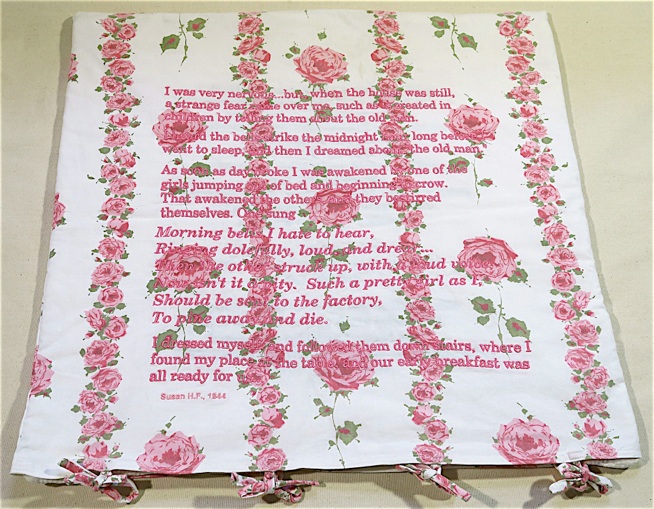 I was very nervous...but when the house was still,
a strange fear came over me, such as is created in
children by telling them about the old man.
I heard the bells strike the midnight long before
went to sleep, and then I dreamed about the old man."
As soon as day broke I was awakened by one of the
girls jumping out of bed and beginning to crow.
That awakened the others and they bestirred
themselves. One sung
Morning bells I hate to hear,
Ringing dolefully, loud and drear...
Then the other struck up, with a loud voice
Now isn't it a pity. Such a pretty girl as I,
Should be sent to the factory,
To pine away and die.
I dressed myself and followed them down stairs, where I
found my place at the table, and our early breakfast was
all ready for us.
Susan H.F., 1844